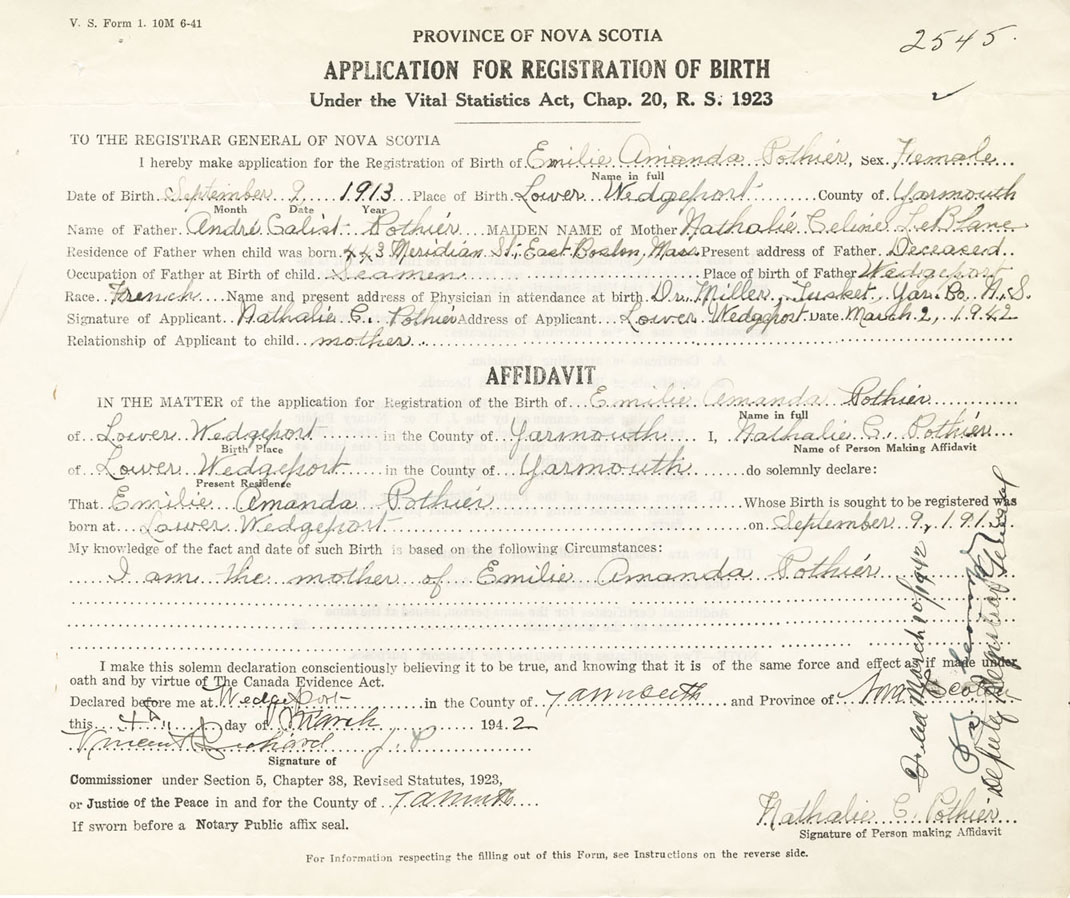 V. S. Form 1. 10M 6-41
2545.
PROVINCE OF NOVA SCOTIA
APPLICATION FOR REGISTRATION OF BIRTH
Under the Vital Statistics Act, Chap. 20, R. S. 1923
TO THE REGISTRAR GENERAL OF NOVA SCOTIA
I hereby make application for the Registration of Birth of Emilie Amanda Pothier, Sex, Female
Name in full
Date of Birth September 9, 1913 Place of Birth Lower Wedgeport County of Yarmouth
Month Date Year
Name of Father André Calist Pothier MAIDEN NAME of Mother Nathalié Celine LeBlanc
Residence of Father when child was born 443 Meridian St; East Boston, Mass Present address of Father Deceased
Occupation of Father at Birth of child Seamen Place of birth of Father Wedgeport
Race French Name and present address of Physician in attendance at birth Dr. Miller, Tusket, Yar. Co. N.S.
Signature of Applicant Nathalie C. Pothier Address of Applicant Lower Wedgeport Date March 2, 1942
Relationship of Applicant to child mother
AFFIDAVIT
IN THE MATTER of the application for Registration of the Birth of Emilie Amanda Pothier
Name in full
of Lower Wedgeport in the County of Yarmouth I, Nathalie C. Pothier
Birth Place Name of Person Making Affidavit
of Lower Wedgeport in the County of Yarmouth do solemnly declare:
Present Residence
That Emilie Amanda Pothier Whose Birth is sought to be registered was
born at Lower Wedgeport on September 9, 1913
My knowledge of the fact and date of such Birth is based on the following Circumstances:
I am the mother of Emilie Amanda Pothier
I make this solemn declaration conscientiously believing it to be true, and knowing that it is of the same force and effect as if made under
oath and by virtue of The Canada Evidence Act.
Declared before me at Wedgeport in the County of Yarmouth and Province of Nova Scotia
this 4th day of March 1942
Vincent J. P
Signature of
Commissioner under Section 5, Chapter 38, Revised Statutes, 1923,
or Justice of the Peace in and for the County of Yarmouth
If sworn before a Notary Public affix seal.
Nathalie C. Pothier
Signature of Person making Affidavit
For Information respecting the filling out of this Form, see Instructions on the reverse side.
Filed March 10/1942
Deputy Registrar General